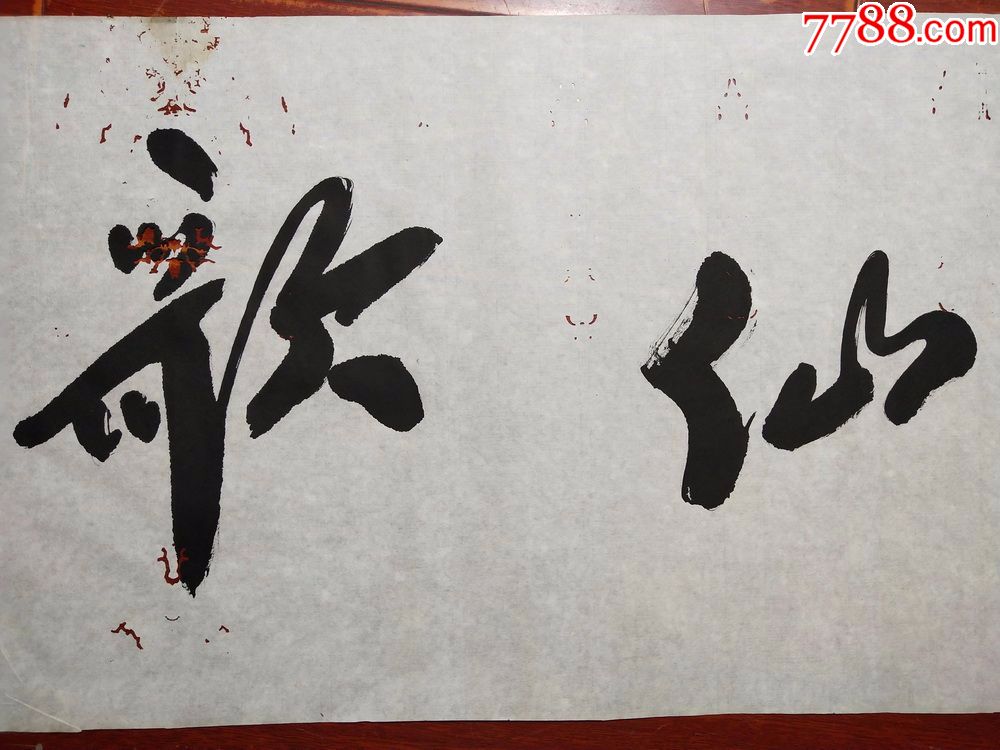 7788.com
仙歌